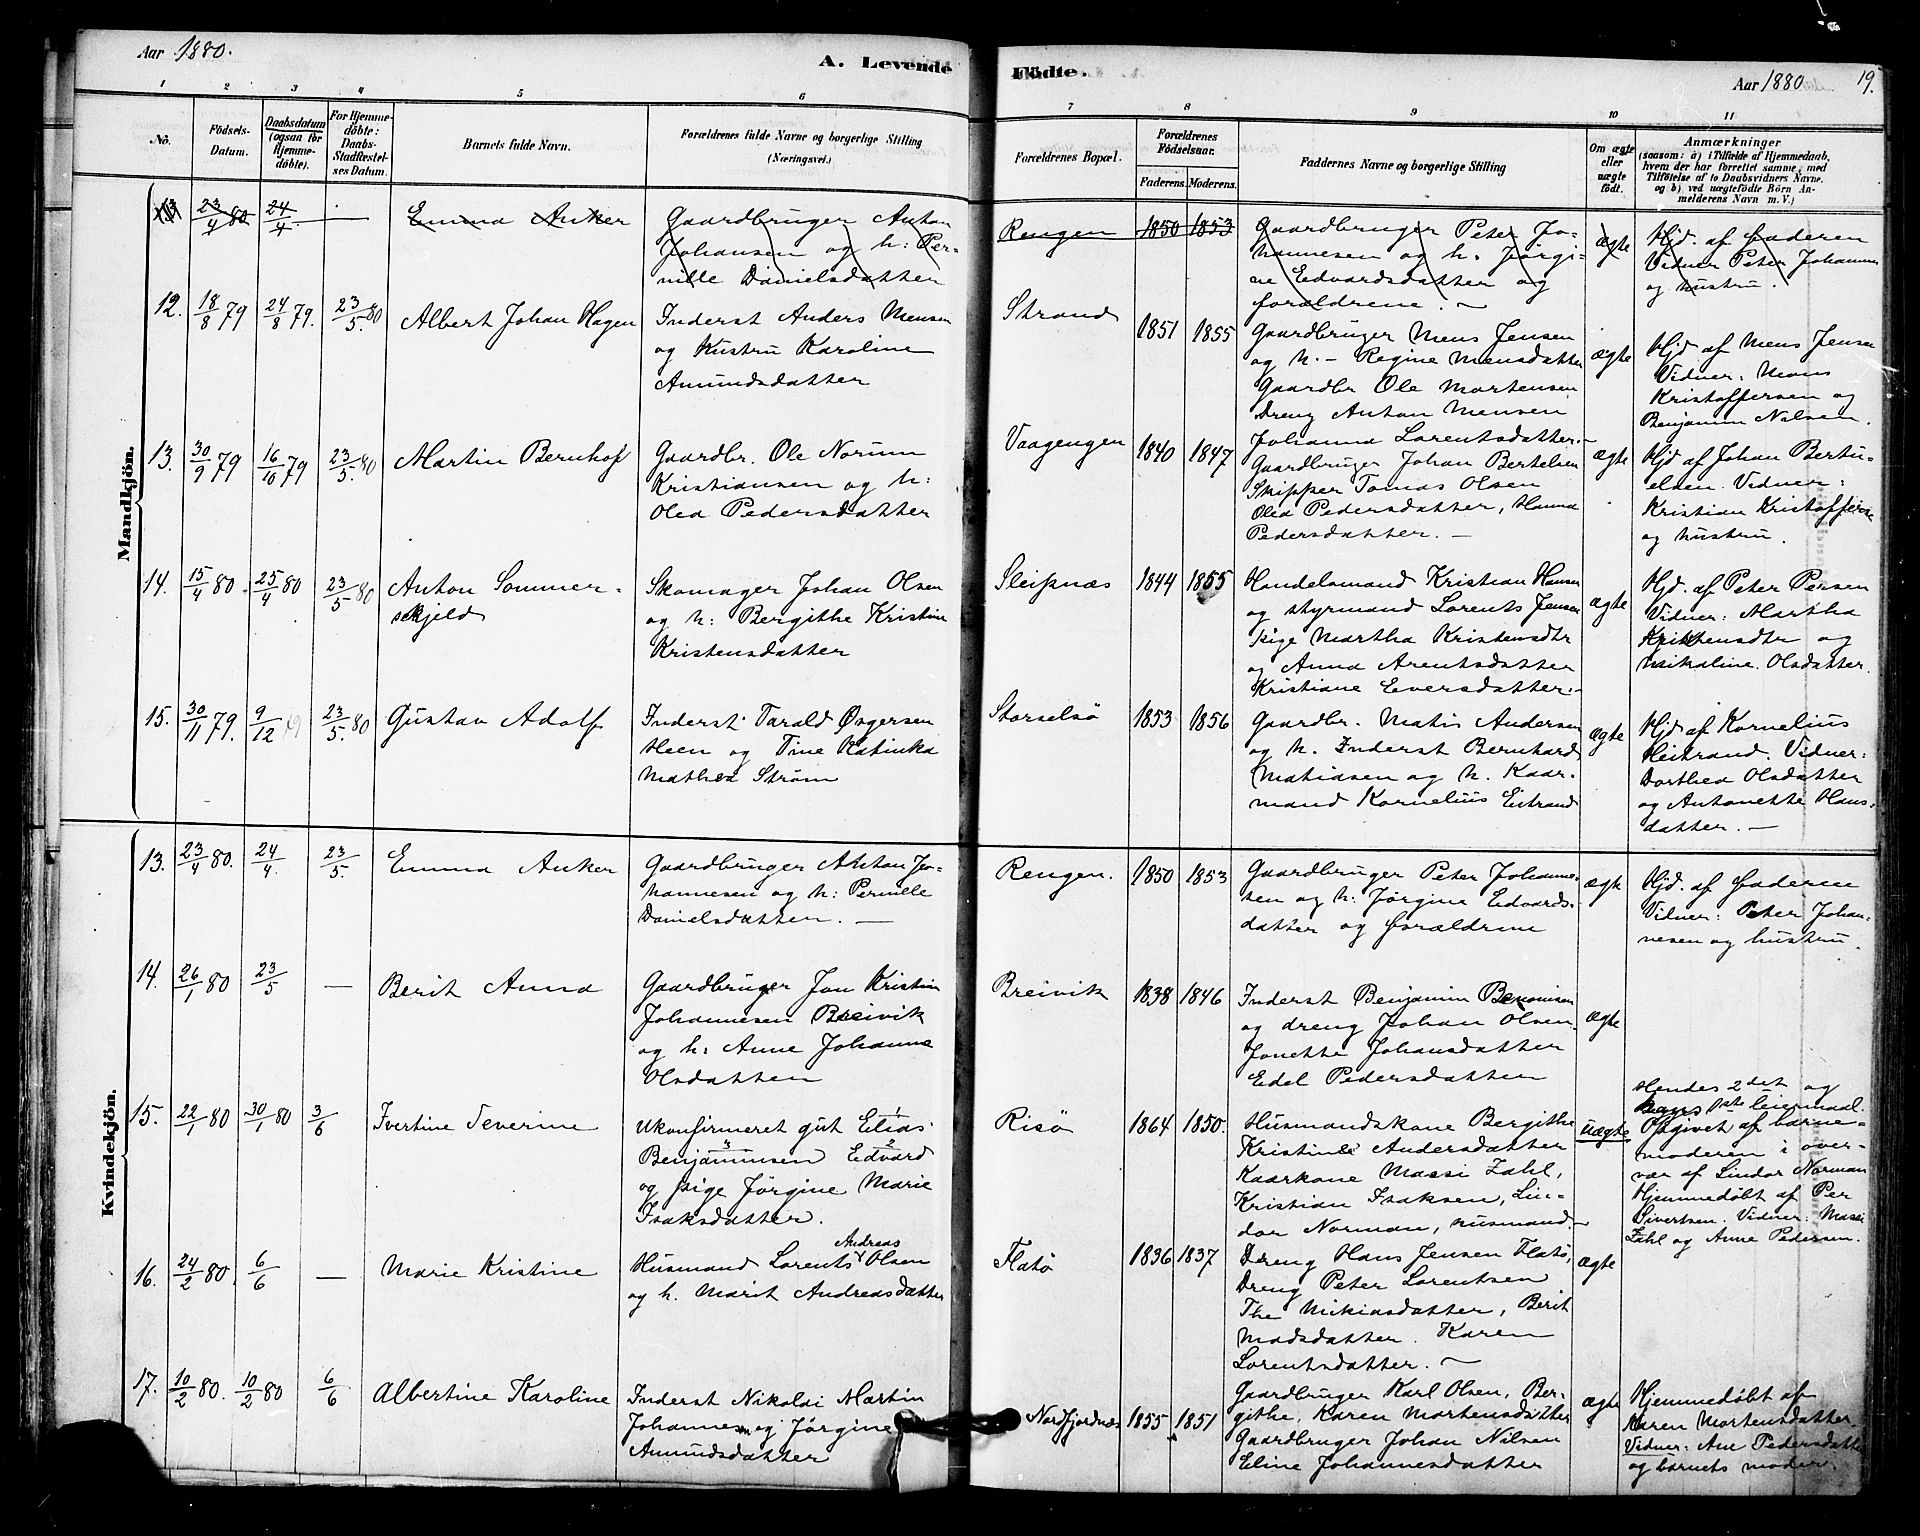 Aar 1880.
A. Levende
1 2 3 4 5 6
No.
Födsels-
Datum.
Daabsdatum
(ogsaa for
Hjemme-
döbte).
For Hjemme-
döbte:
Daabs-
Stadfæstel-
ses Datum.
Barnets fulde Navn.
Forældrenes fulde Navne og borgerlige Stilling
(Næringsvei.)
Mandkjön.
23/4 80 24/4 — Emma Anker Gaardbruger Anton
Johansen og h: Per-
nille Danielsdatter
12. 18/8 79 24/8 79. 23/5 80 Albert Johan Hagen Inderst Anders Mensen
og Hustru Karoline
Amundsdatter
13. 30/9 79 16/10 79 23/5 80 Martin Bernhof Gaardbr. Ole Norum
Kristiansen og h:
Olea Pedersdatter
14. 15/4 80. 25/4 80 23/5 80 Anton Sommer- Skomager Johan Olsen
skjeld og h: Bergithe Kristine
Kristensdatter
15. 30/11 79. 9/12 79 23/5 80 Gustav Adolf Inderst Tarald Øygersen
Heen og Tine Katinka
Mathea Strøm
Kvindekjön.
13. 23/4 80. 24/4 23/5. Emma Anker Gaardbruger Anton Jo-
hannesen og h: Pernille
Danielsdatter. —
14. 26/1 80 23/5 — Berit Anna Gaardbruger Jon Kristian
Johannesen Breivik
og h: Anne Johanne
Olsdatter
15. 22/1 80 30/1 80 3/6 Ivertine Severine Ukonfirmeret gut Elias 1
Benjaminsen 3 Edvard 2
og pige Jørgine Marie
Isaksdatter.
Andreas
16. 24/2 80. 6/6 — Marie Kristine Husmand Lorents Olsen
og h. Marit Andreasdatter
17. 10/2 80. 10/2 80 6/6 Albertine Karoline Inderst Nikolai Martin
Johannesen og Jørgine
Amundsdatter
Födte.
Aar 1880 19.
7 8 9 10 11
Forældrenes Bopæl.
Forældrenes
Födselsaar.
Faderens. Moderens.
Faddernes Navne og borgerlige Stilling
Om ægte
eller
uægte
födt.
Anmærkninger
(saasom: a) i Tilfælde af Hjemmedaab,
hvem der har forrettet samme, med
Tilföielse af to Daabsvidners Navne.
og b) ved uægtefödte Börn An-
melderens Navn m. V.)
Rengen 1850 1853 Gaardbruger Peter Jo- ægte Hjd. af Faderen
hannesen og h. Jørgi- Vidner Peter Johannes
ne Edvardsdatter og og hustru.
forældrene. —
Strand 1851 1855 Gaardbruger Mens Jensen ægte Hjd af Mens Jensen
og h. — Regine Mensdatter Vidner: Mons
Gaardbr Ole Mortensen Kristoffersen og
Dreng Anton Mensen Benjamin Nilsen.
Johanna Lorentsdatter. —
Vaagengen 1840 1847 Gaardbruger Johan Bertelsen ægte Hjd af Johan Bertu-
Skipper Tomas Olsen elsen. Vidner:
Olea Pedersdatter, Hanna Kristian Kristoffersen
Pedersdatter. — og hustru.
Sleipnæs 1844 1855 Handelsmand Kristian Hansen ægte Hjd. af Peter Persen
og styrmand Lorents Jensen Vidner: Martha
pige Martha Kristensdtr Kristensdtr og
og Anna Arentsdatter Nikoline Olsdatter.
Kristiane Eversdatter. —
Storselsö 1853 1856 Gaardbr. Matis Andersen ægte Hjd af Kornelius
og h. Inderst Bernhard Heitrand. Vidner:
Matiasen og h. Kaar- Dorthea Olsdatter
mand Kornelius Eitrand og Antonette Hans-
datter. —
Rengen. 1850 1853 Gaardbruger Peter Johanne- ægte Hjd. af Faderen
sen og h: Jørgine Edvards- Vidner: Peter Johan-
datter og forældrene nesen og hustru.
Breivik 1838 1846 Inderst Benjamin Benonisen ægte
og dreng Johan Olsen.
Jonette Johansdatter
Edel Pedersdatter
Risö 1864 1850. Husmandskone Bergithe uægte Hendes 2det og
Kristine Andersdatter hans 1ste leiermaal.
Kaarkone Massi Zahl, Opgivet af barne-
Kristian Isaksen, Lin- moderen i over-
dor Norman, husmand. — vær af Lindor Norman
Hjemmedøbt af Per
Sivertsen. Vidner: Massi
Zahl og Anne Pedersen.
Flatö 1836 1837 Dreng Hans Jensen Flatö, ægte
Dreng Peter Lorentsen
Thea Mikiasdatter, Berit
Madsdatter. Karen
Lorentsdatter. —
Nordfjordnæs 1855 1851 Gaardbruger Karl Olsen, Ber- ægte Hjemmedøbt af
githe, Karen Mortensdatter Karen Mortensdatter.
Gaardbruger Johan Nilsen Vidner: Ane Pedersdatter
Eline Johannesdatter og barnets moder.